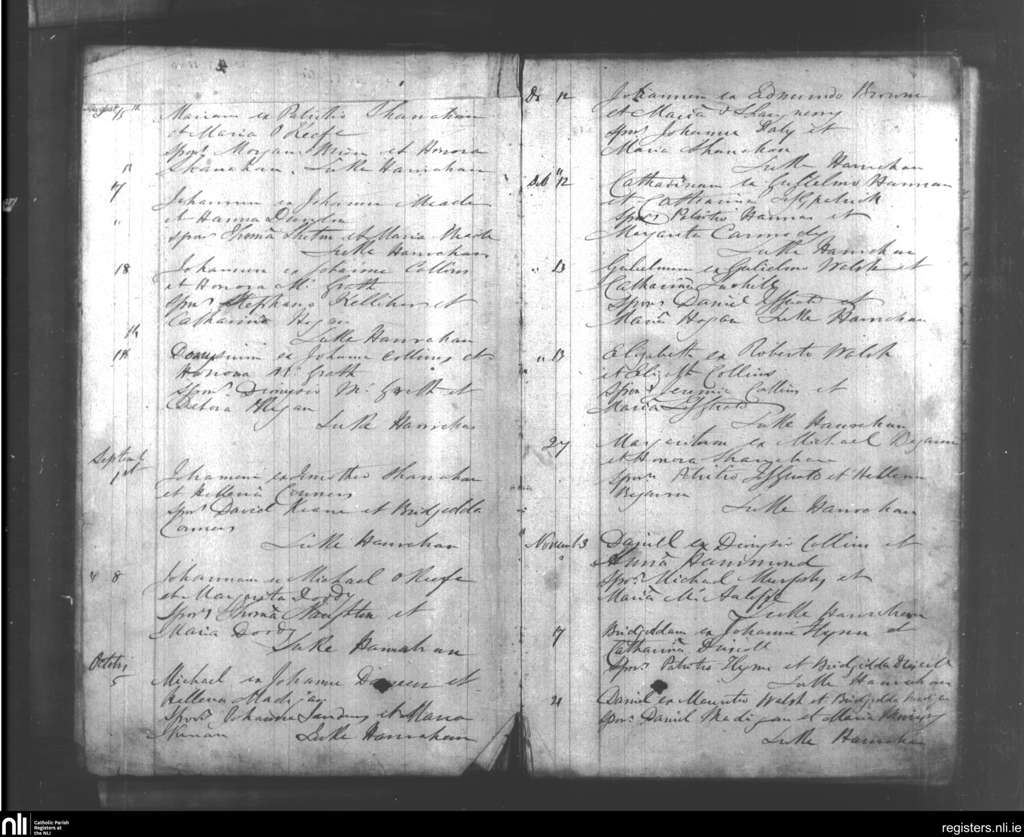 August 15 th
Mariam ex Patritio Shanahan
et Maria O Keefe
Spors Morgan et Honora
Shanahan. Luke Hanrahan
17
Johannem ex Johanne Meade
et Hanna
spors Thomā et Maria Meade
Luke Hanrahan
18 Johannem ex Johanne Collins
et Honora Mc Grath
Spors Stephano Kelliher et
Catharina Hogan
Luke Hanrahan
18 th ex Johanne Collins et
Honora Mc Grath
Spors Dionysio Mc Grath et
Debora Regan
Luke Hanrahan
Septemb
1st Johannem ex Timotheo Shanahan
et Hellena Connors
Spors David Keane et Bridgedda
Connors
Luke Hanrahan
8 Johannam ex Michael O Keefe
et Margarita Doody
Spors Thomā Naughton et
Maria Doody
Luke Hanrahan
Octobris
5 Michael ex Johanne Dineen et
Hellena Madigan
Spors Johanne et Maria
Luke Hanrahan
Do 12 Johannem ex Edmundo Browne
et Maria
Spors Johanne Daly et
Maria Shanahan
Luke Hanrahan
Do 12 Catharinam ex Gulielmo Hannan
et Catharina Fitzpatrick
Spors Patritio Hannan et
Margarita Carmody
Luke Hanrahan
" 13 Gulielmum ex Gulielmo Walsh et
Catharina
Spors Daniel et
Mariā Hogan Luke Hanrahan
" 13 Elizabeth ex Roberto Walsh
et Elizabeth Collins
Spors Collins et
Maria
Luke Hanrahan
27 Margaritam ex Michael
et Honora Shanahan
Spors Patritio et Hellena
Luke Hanrahan
Novemb 3 Daniel ex Dionysio Collins et
Anna Hammond
Spors Michael Murphy et
Mariā McAuliffe
Luke Hanrahan
7 Bridgiddam ex Johanne Flynn et
Catharinā Driscoll
Spors Patritio Flynn et Bridgidda Driscoll
Luke Hanrahan
21 Daniel ex Mauritio Walsh et Bridgidda Madigan
Spors Daniel Madigan et Maria
Luke Hanrahan
nli
Catholic Parish
Registers at
the NLI
registers.nli.ie